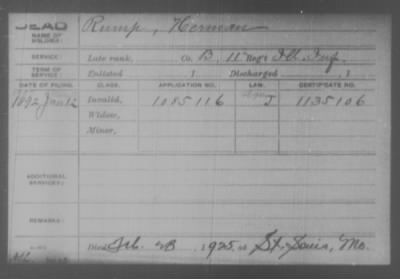 DEAD
NAME OF SOLDIER: Rump, Herman
SERVICE: Late rank, Co. B, 11" Reg't Ill. Inf.
TERM OF SERVICE: Enlisted , 1 Discharged , 1
DATE OF FILING. CLASS. APPLICATION NO. LAW. CERTIFICATE NO.
1892 Jan 12 Invalid, 1085116 J 1135106
Widow,
Minor,
ADDITIONAL SERVICES:
REMARKS:
Died Feb. 1925, at St. Louis, Mo.